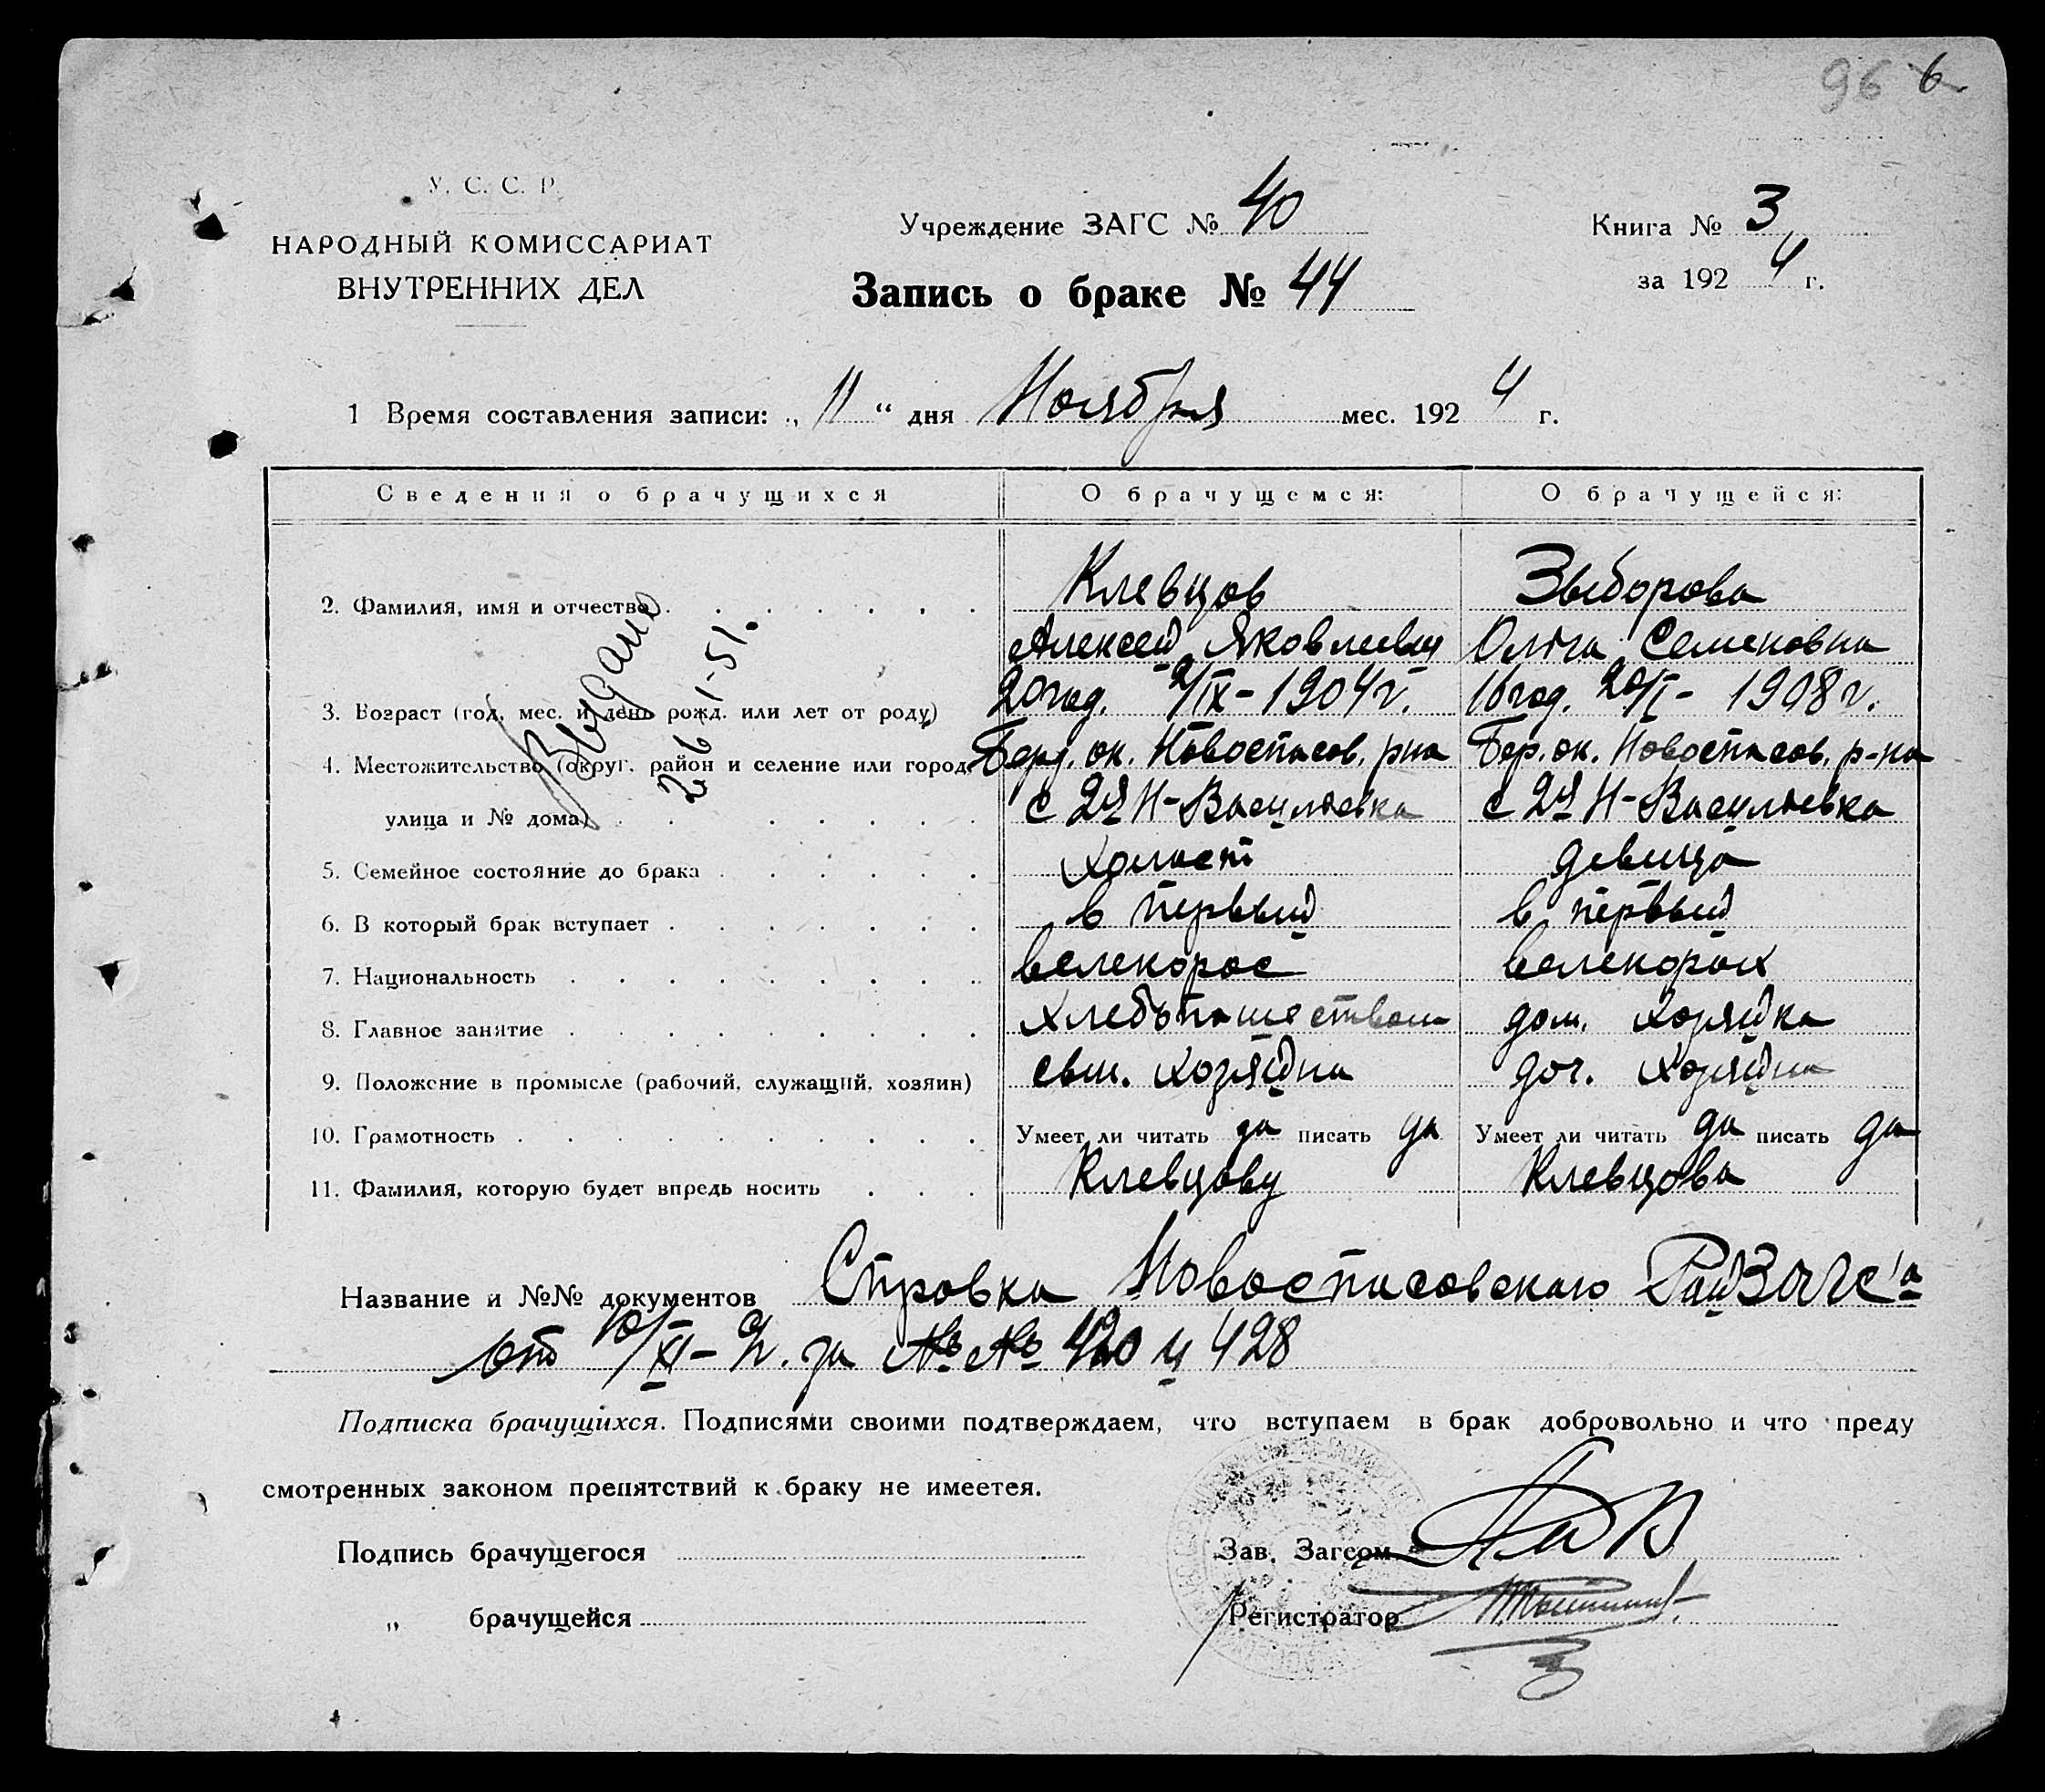 96 6
У. С. С. Р.
НАРОДНЫЙ КОМИССАРИАТ
ВНУТРЕННИХ ДЕЛ
Учреждение ЗАГС № 40
Книга № 3
за 1924 г.
Запись о браке № 44
1 Время составления записи: „ 11 “ дня Ноября мес. 1924 г.
Сведения о брачущихся О брачущемся: О брачущейся:
2. Фамилия, имя и отчество Клевцов Зыборова
Алексей Яковлевич Ольга Семеновна
3. Возраст (год, мес. и день рожд. или лет от роду) 20 год. 2/IX - 1904 г. 16 год. 20/I - 1908 г.
4. Местожительство (округ, район и селение или город, Берд. ок. Новоспасов. рна Бер. ок. Новоспасов. р-на
улица и № дома) с 2я Н-Васильевка с 2я Н-Васильевка
Выдано
26 1-51.
5. Семейное состояние до брака холост девица
6. В который брак вступает в первый в первый
7. Национальность велекорос велекорос
8. Главное занятие хлебопашеством дом. хозяйка
9. Положение в промысле (рабочий, служащий, хозяин) сын. хозяйна доч. хозяйна
10. Грамотность Умеет ли читать да писать да Умеет ли читать да писать да
11. Фамилия, которую будет впредь носить Клевцову Клевцова
Название и №№ документов Справка Новоспасовского РайЗагс'а
от 10/XI - за №№ и 428
Подписка брачущихся. Подписями своими подтверждаем, что вступаем в брак добровольно и что преду
смотренных законом препятствий к браку не имеется.
Подпись брачущегося Зав. Загсом
„ брачущейся Регистратор